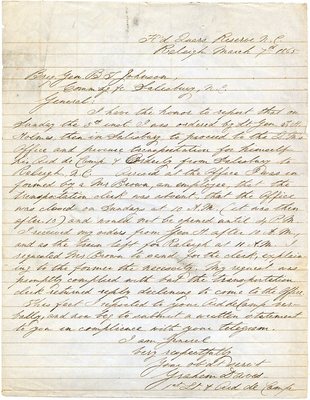 Hd Quars Reserve N.C.
Raleigh March 7th 1865
Brig Gen B T Johnson,
Commdg &c Salisbury, N.C.
General:
I have the honor to report that on
Sunday the 5th inst. I was ordered by Lt. Gen T. H.
Holmes, then in Salisbury to proceed to the Q. Ms.
Office and procure transportation for himself
his Aid de Camp & Orderly from Salisbury to
Raleigh, N.C. Arrived at the Office I was in
formed by a Mr Brown, an employee, that the
transportation clerk was absent, that the Office
was closed on Sunday at 10 A.M. (it was then
after 10) and would not be opened until
I received my orders from Gen H. after 10 A.M.
and as the train left for Raleigh at 11 A.M. I
requested Mr Brown to send for the clerk, explain
ing to the former the necessity. My request was
promptly complied with but the transportation
clerk returned reply declining to come to the Office.
This fact I reported to your Aid de camp ver-
bally, and now beg to submit a written statement
to you in compliance with your telegram.
I am General
very respectfully
Your obdt servt
Graham Daves
1st Lt. & Aid de Camp